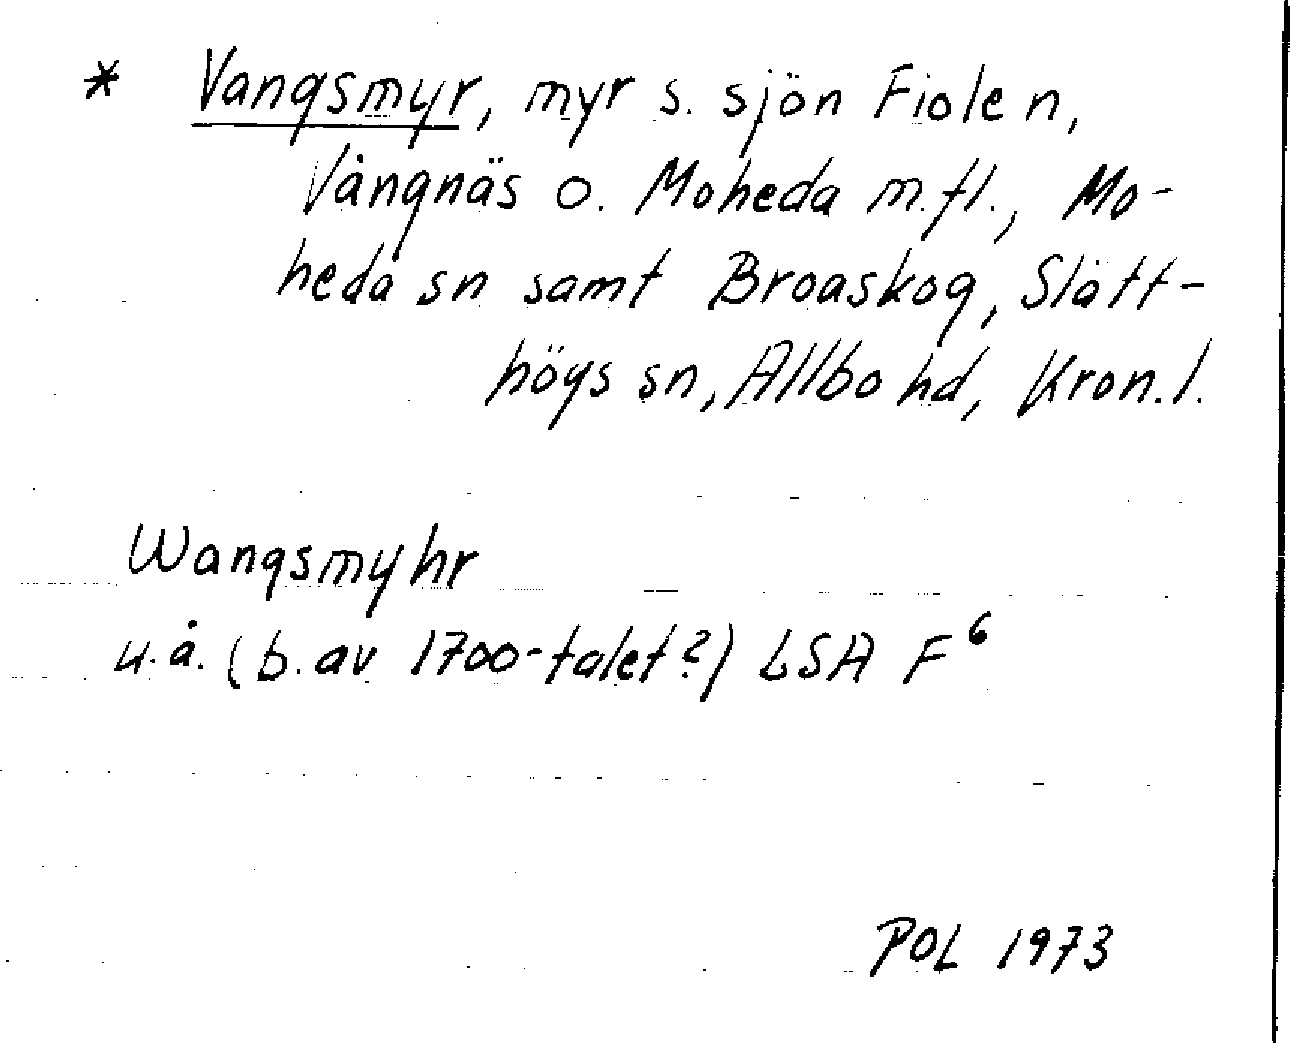 * Vangsmyr, myr s. sjön Fiolen,
Vångnäs o. Moheda m.fl., Mo-
heda sn samt Broaskog, Slätt-
högs sn, Allbo hd, Kron.l.
Wangsmyhr
u.å. (b. av 1700-talet?) LSA F⁶
POL 1973